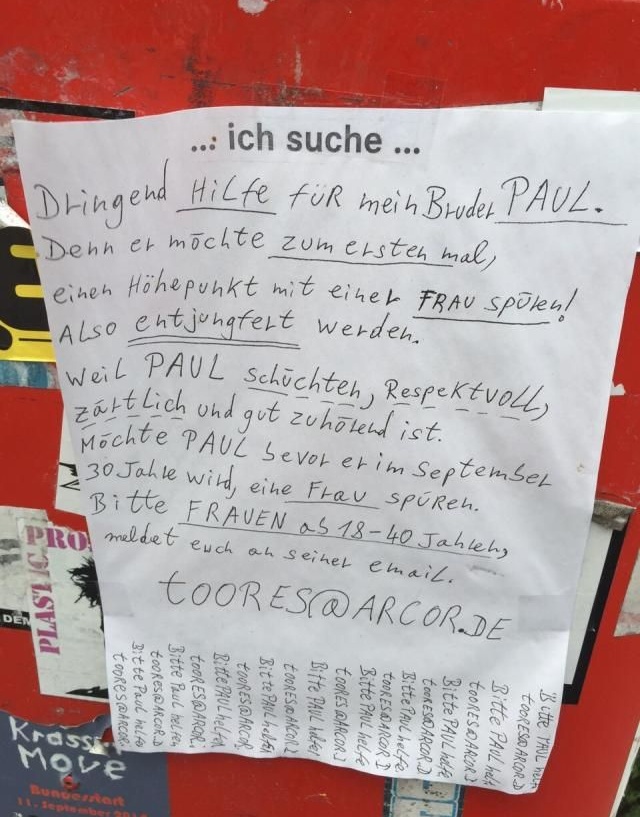 ... ich suche ...
Dringend HiLfe füR mein Bruder PAUL.
Denn er möchte zum ersten mal,
einen Höhepunkt mit einer FRAU spüren!
Also entjungfert werden.
Weil PAUL schüchten, Respektvoll,
zärtlich und gut zuhörend ist.
Möchte PAUL bevor er im September
30 Jahre wird, eine Frau spüren.
Bitte FRAUEN ab 18-40 Jahren,
meldet euch an seiner email.
tOORES@ARCOR.DE
Bitte Paul helfe
tOORES@ARCOR.
Bitte Paul helfen
tOORES@ARCOR.D
Bitte PAUL helfen
tOORES@ARCOR.
Bitte PAUL helfen
tOORES@ARCOR.
Bitte PAUL helfen
tOORES@ARCOR.
Bitte PAUL helfe
tOORES@ARCOR.
Bitte PAUL helfe
tOORES@ARCOR.D
Bitte PAUL helfe
tOORES@ARCOR.D
Bitte PAUL helf
tOORES@ARCOR.
Bitte PAUL helfe
tOORES@ARCOR.D
PRO
PLASTIC
DEM
Krasse
Move
Bundesstart
11. September 20